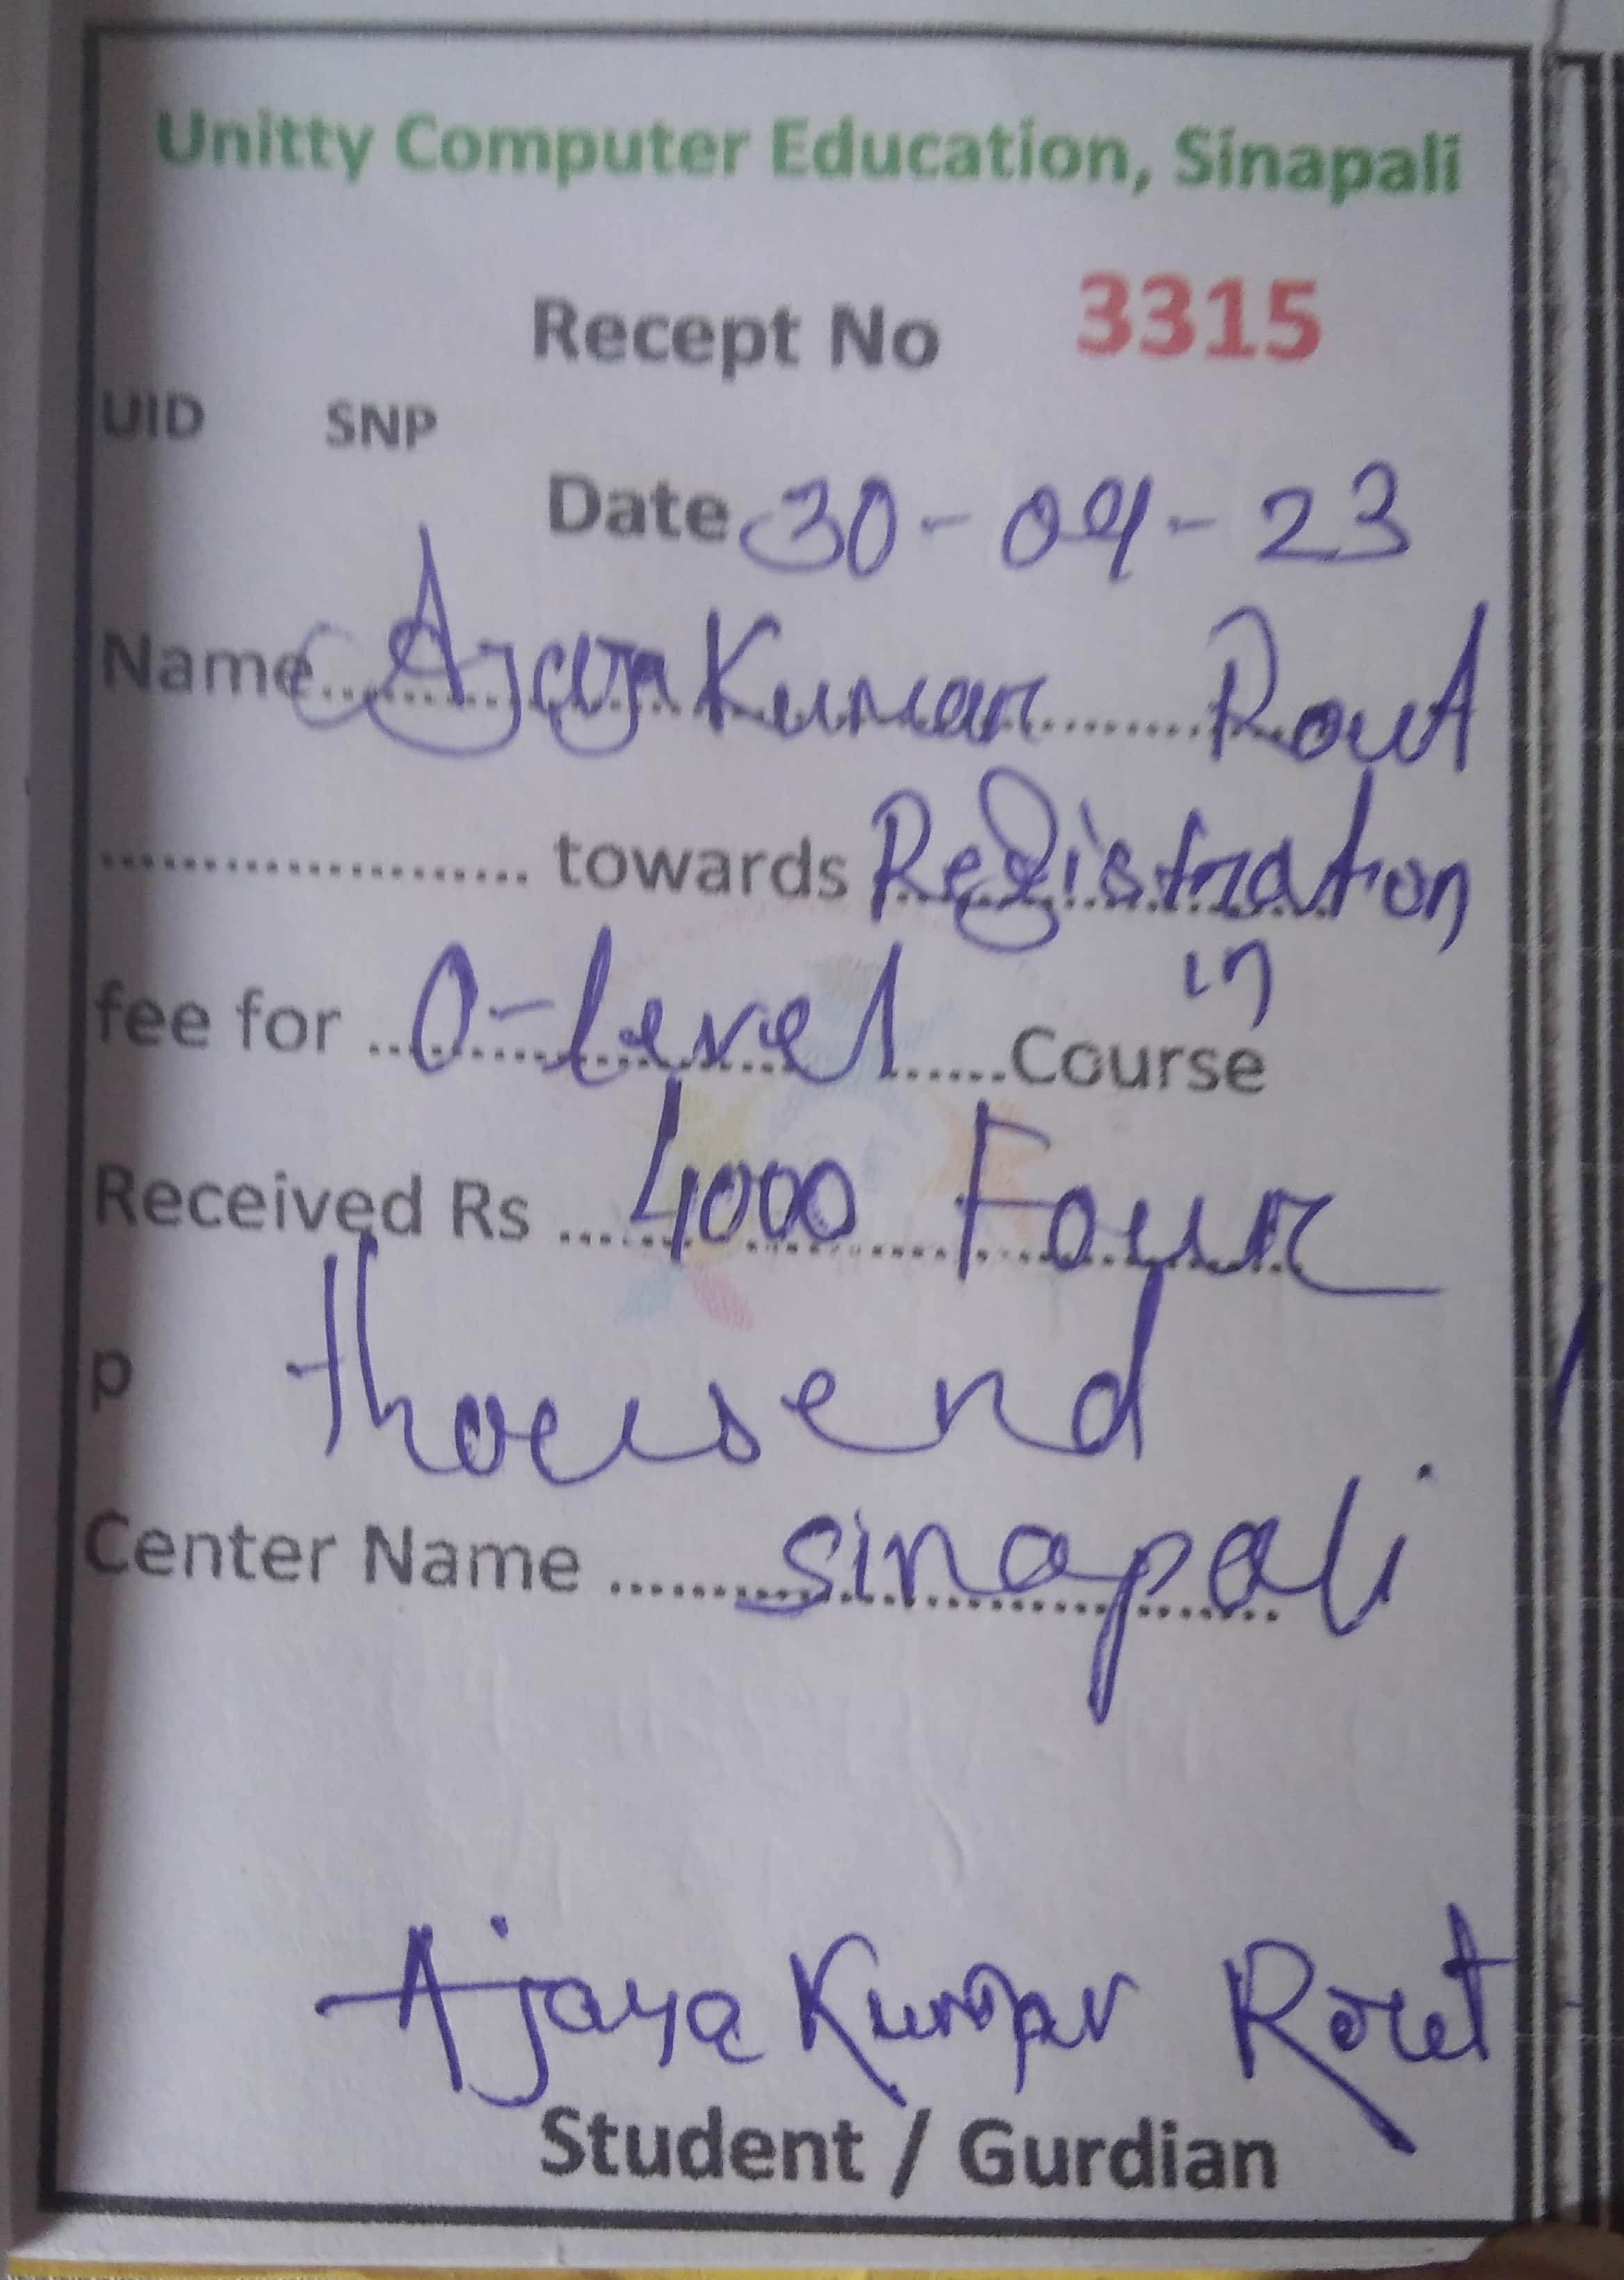 Unitty Computer Education, Sinapali
Recept No 3315
UID SNP
Date 30-04-23
Name Ajaya Kumar Rout
towards Registration
fee for O-level in Course
Received Rs 4000 Four
p thousend
Center Name sinapali
Ajaya Kumar Rout
Student / Gurdian